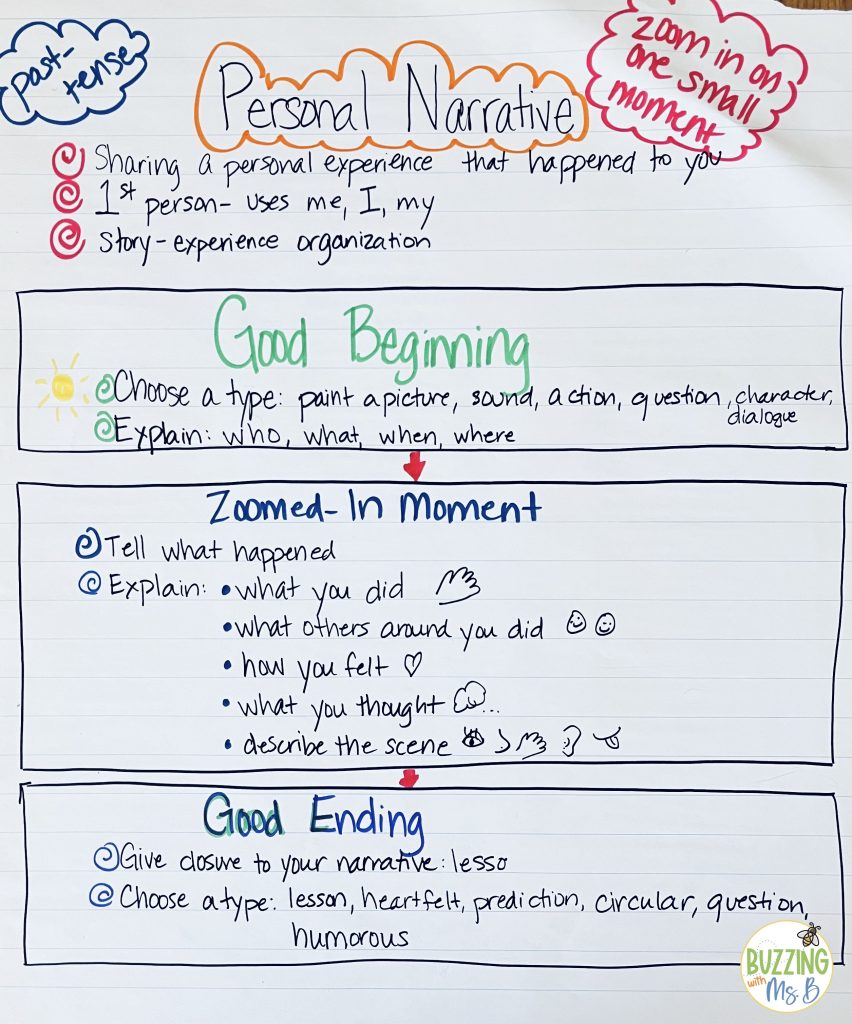 past-
tense
Personal Narrative
zoom in on
one small
moment
Sharing a personal experience that happened to you
1st person- uses me, I, my
Story-experience organization
Good Beginning
Choose a type: paint a picture, sound, action, question, character,
dialogue
Explain: who, what, when, where
Zoomed-In Moment
Tell what happened
Explain: • what you did
• what others around you did
• how you felt
• what you thought ...
• describe the scene
Good Ending
Give closure to your narrative: lesso
Choose a type: lesson, heartfelt, prediction, circular, question,
humorous
BUZZING
with
Ms. B